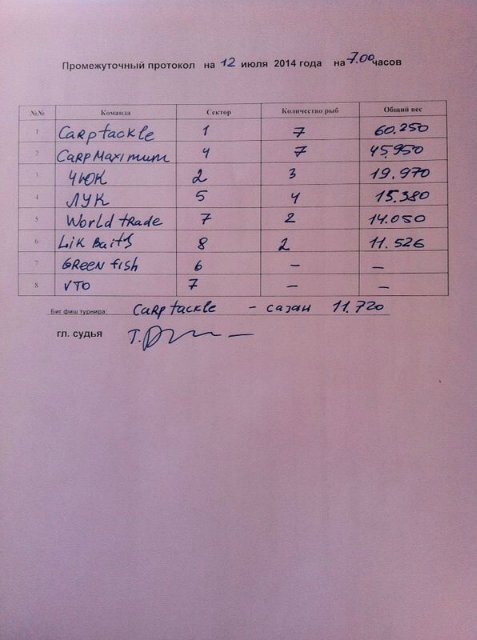 Промежуточный протокол на 12 июля 2014 года на 7.00 часов
№№ Команда Сектор Количество рыб Общий вес
1 Carptackle 1 7 60.250
2 CARPMAXIMUM 4 7 45.950
3 ЧЮК 2 3 19.970
4 ЛУК 5 4 15.380
5 World tRAde 7 2 14.050
6 Lik Baits 8 2 11.526
7 GReen fish 6 – –
8 VTO 7 – –
Биг фиш турнира: CARp tackle - сазан 11.720
гл. судья